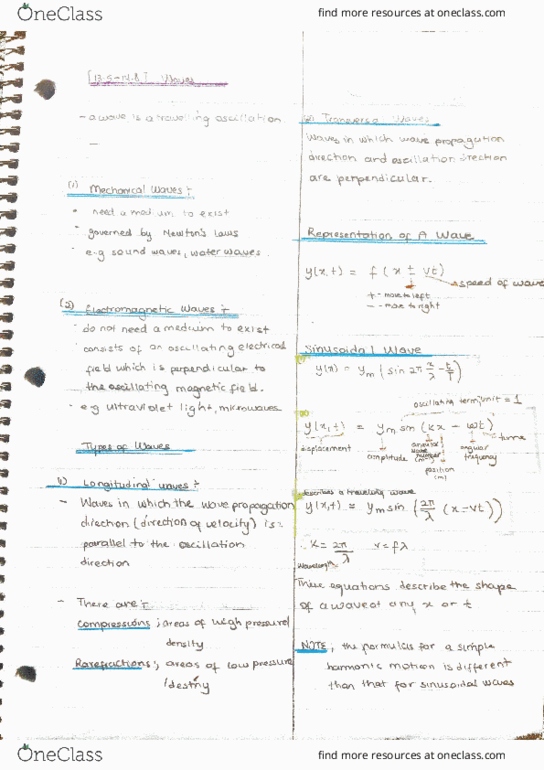 OneClass
find more resources at oneclass.com
[13.5-14.8] Waves
- a wave is a travelling oscillation
-
(1) Mechanical Waves :-
• need a medium to exist
• governed by Newton's laws
• e.g sound waves, water waves.
(2) Electromagnetic Waves :-
• do not need a medium to exist
• consists of an oscillating electrical
field which is perpendicular to
the oscillating magnetic field.
• eg ultraviolet light, microwaves
Types of Waves
1) Longitudinal waves :-
- Waves in which the wave propagation
direction (direction of velocity) is
parallel to the oscillation
direction
- There are :-
compressions ; areas of high pressure/
density
Rarefractions ; areas of low pressure
/destiny
Transverse Waves
Waves in which wave propagation
direction and oscillation direction
are perpendicular.
Representation of A Wave
y(x,t) = f (x ± vt)
speed of wave
+ - move to left
- - move to right
Sinusoidal Wave
y(x) = ym (sin 2π x/λ - t/T)
oscillating term/unit = 1
y(x,t) = ym sin (kx - ωt)
displacement
amplitude
angular
wave
number
position
(m)
angular
frequency
time
describes a travelling wave
y(x,t) = ym sin (2π/λ (x-vt))
K = 2π/λ v = fλ
Wavelength
These equations describe the shape
of a wave at any x or t
NOTE ; the formulas for a simple
harmonic motion is different
than that for sinusoidal waves
OneClass
find more resources at oneclass.com